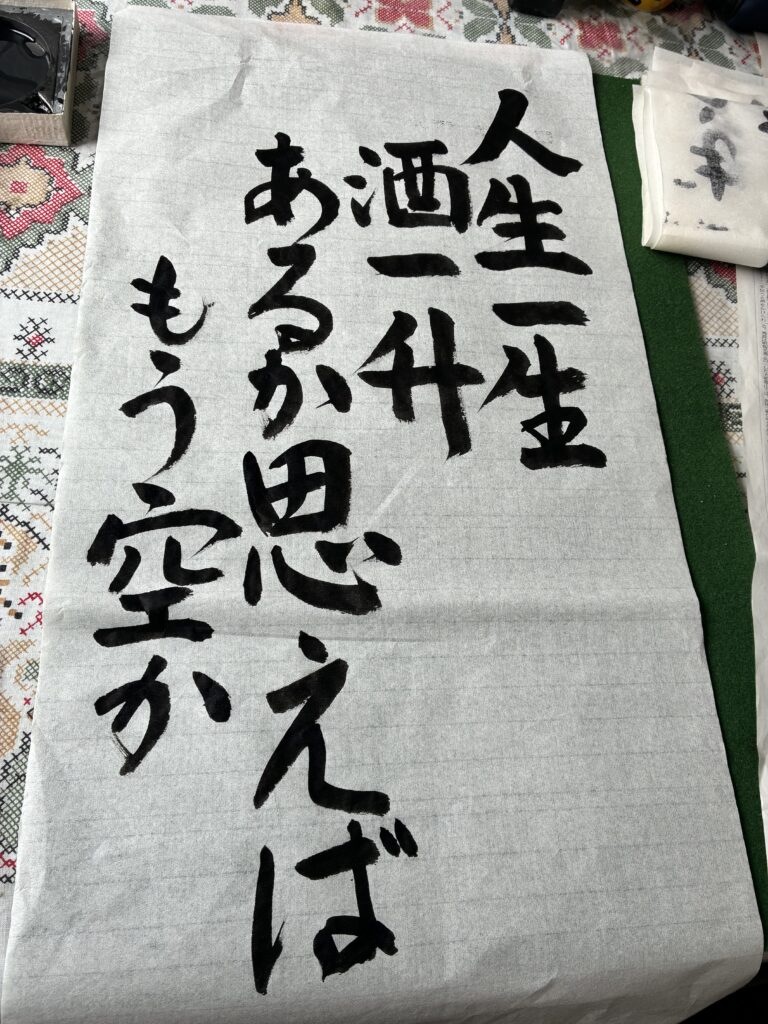 人生一生
酒一升
あるか思えば
もう空か